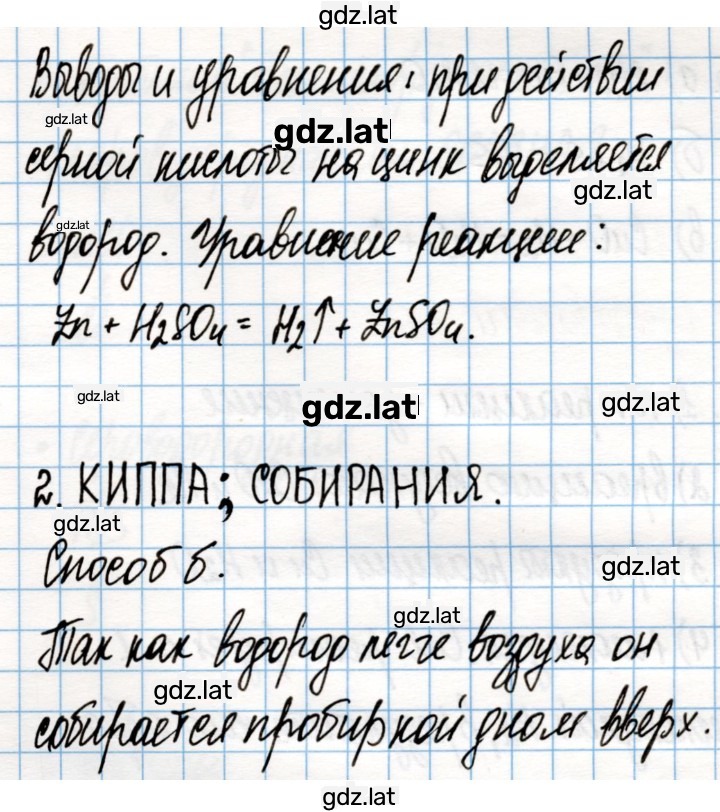 gdz.lat
Выводы и уравнения: при действии
gdz.lat
gdz.lat
серной кислоты на цинк выделяется
gdz.lat
gdz.lat
водород. Уравнение реакции:
Zn + H₂SO₄ = H₂↑ + ZnSO₄.
gdz.lat
gdz.lat
gdz.lat
2. КИППА; СОБИРАНИЯ.
gdz.lat
Способ б.
gdz.lat
gdz.lat
Так как водород легче воздуха он
gdz.lat
собирается пробиркой дном вверх.
gdz.lat